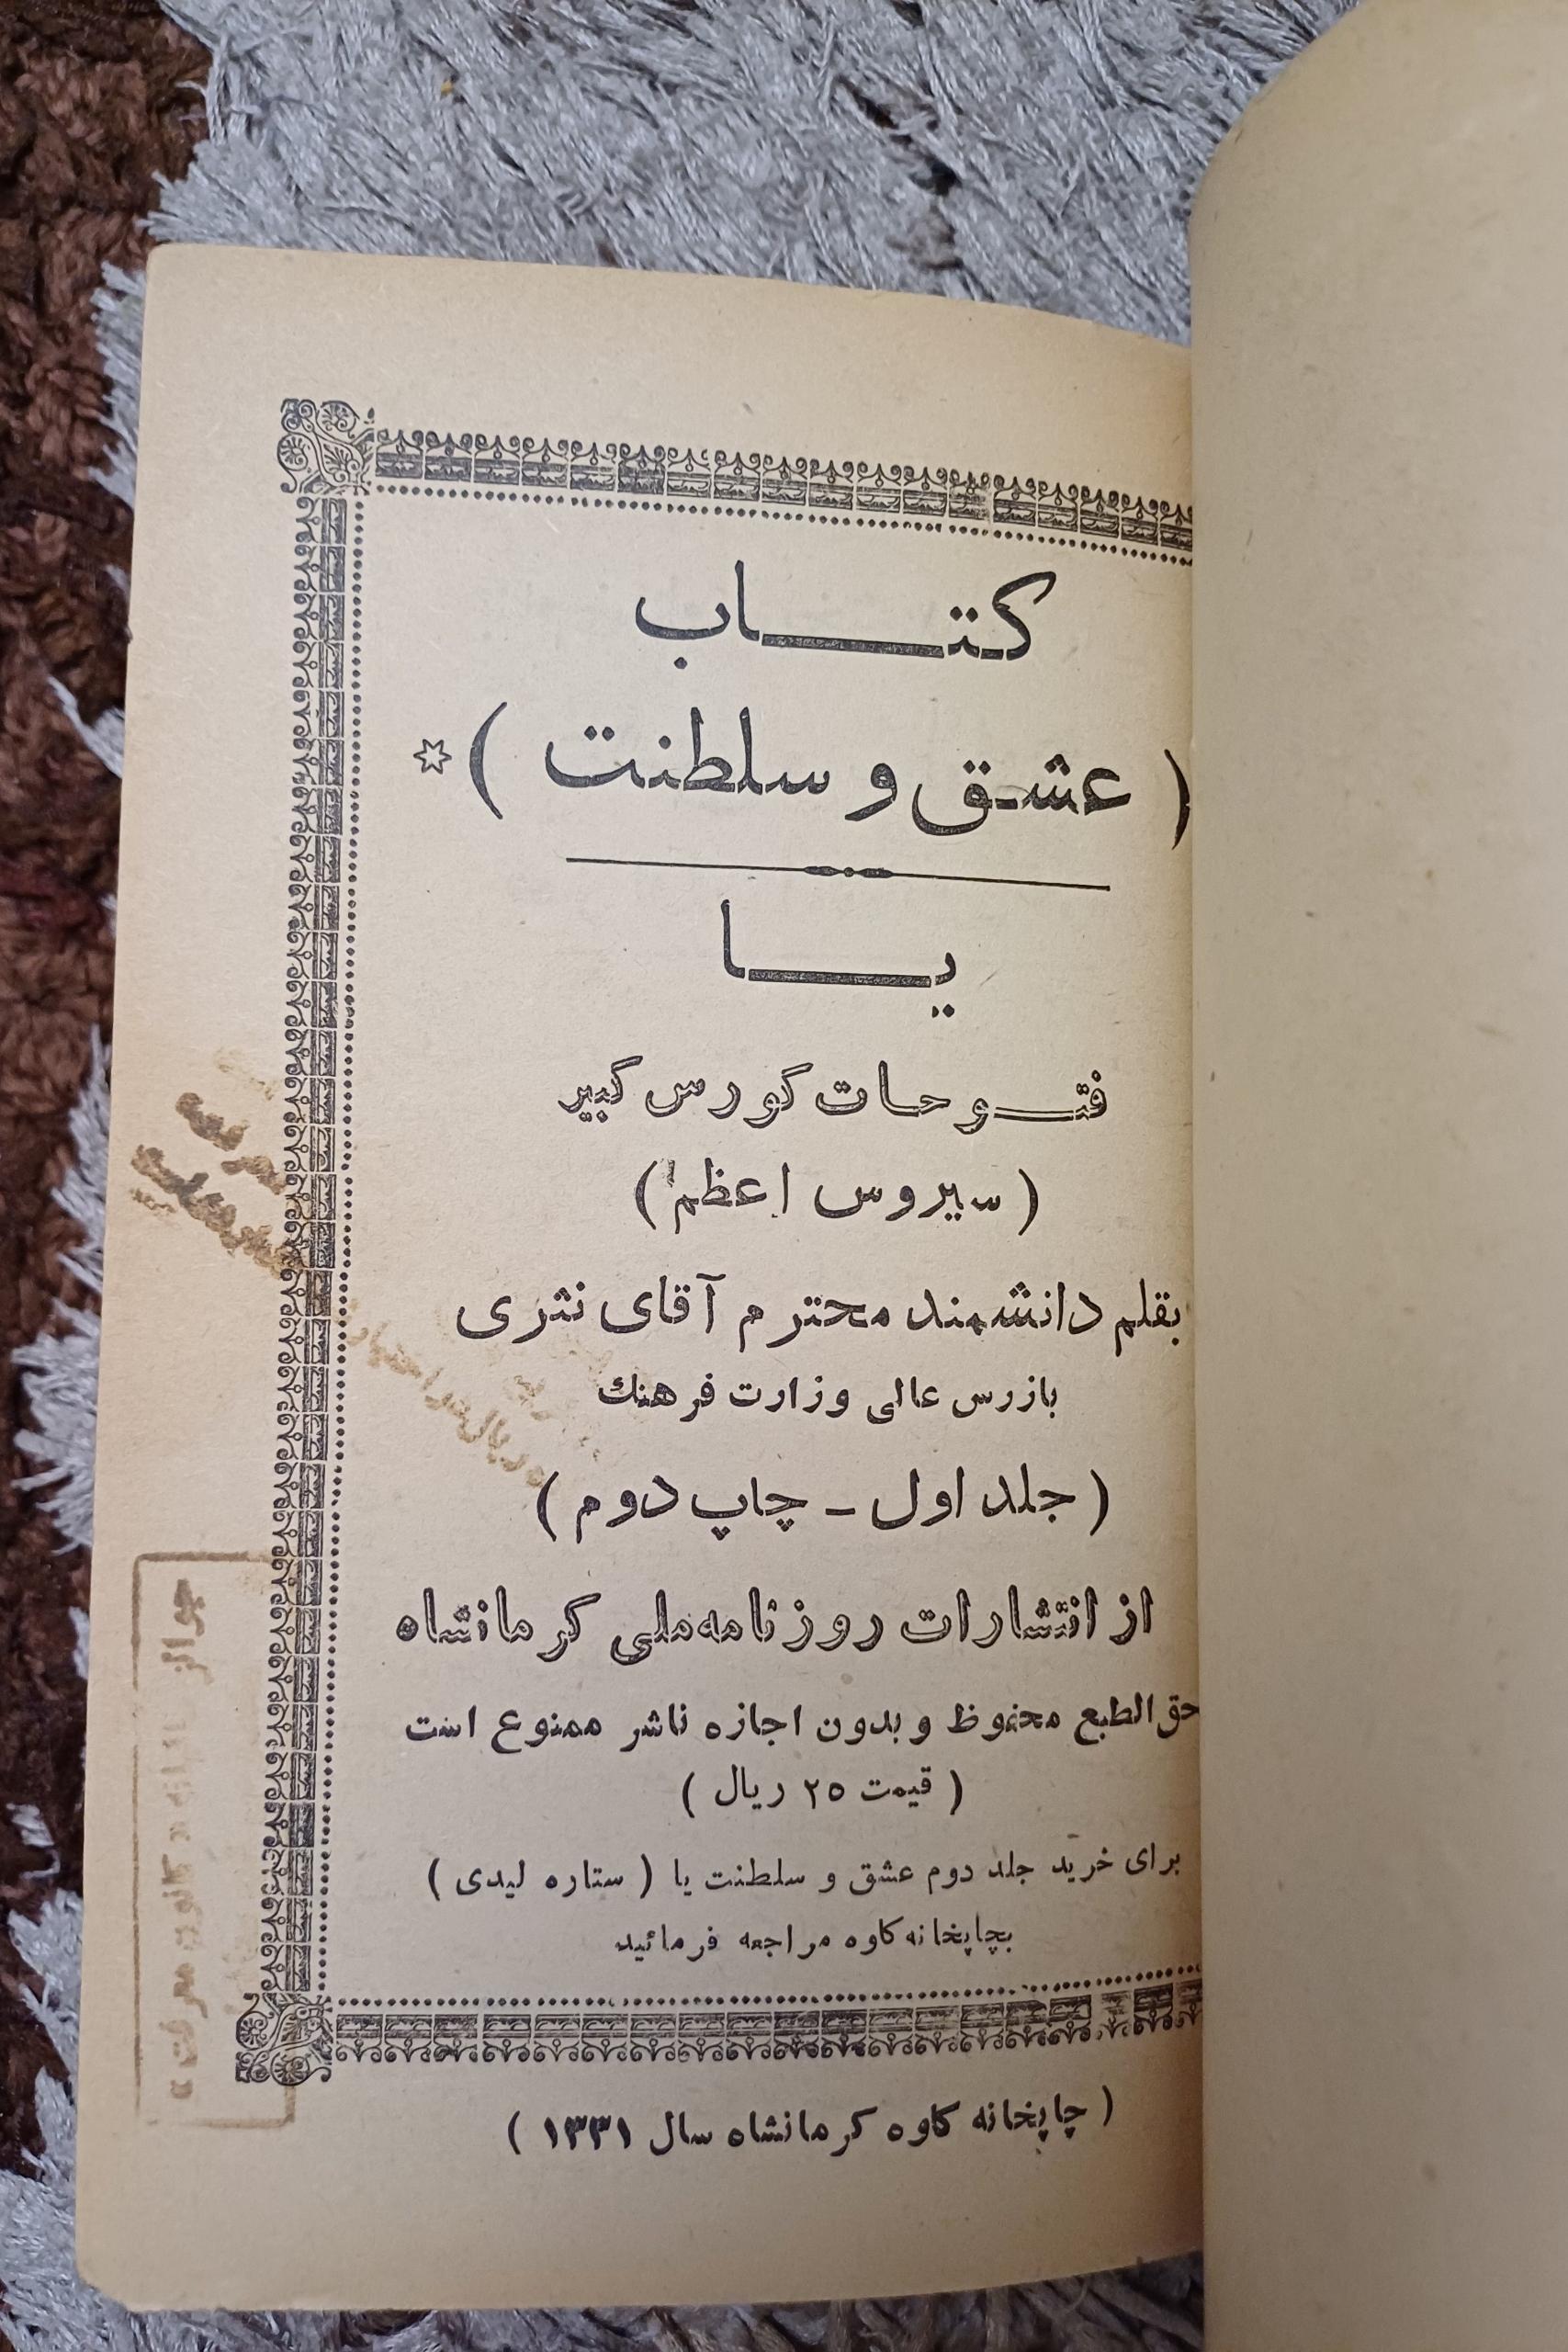 کتاب
( عشق و سلطنت )
یا
فتوحات کورس کبیر
( سیروس اعظم )
بقلم دانشمند محترم آقای نثری
بازرس عالی وزارت فرهنك
( جلد اول - چاپ دوم )
از انتشارات روزنامه ملی کرمانشاه
حق الطبع محفوظ و بدون اجازه ناشر ممنوع است
( قیمت ۲۵ ریال )
برای خرید جلد دوم عشق و سلطنت یا ( ستاره لیدی )
بچاپخانه کاوه مراجعه فرمائید
( چاپخانه کاوه کرمانشاه سال ۱۳۳۱ )